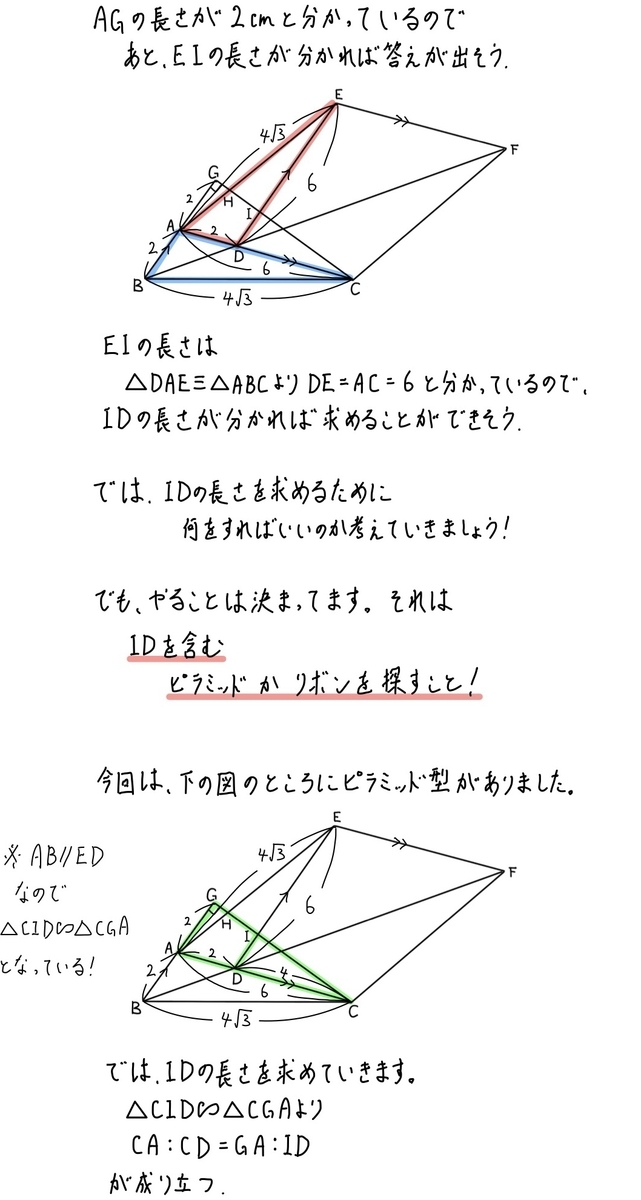 AGの長さが2cmと分かっているので
あと、EIの長さが分かれば答えが出そう.
E
4√3
F
G
6
2
H
A
I
2
2
D
6
B
C
4√3
EIの長さは
△DAE≡△ABCより DE=AC=6と分かっているので、
IDの長さが分かれば求めることができそう.
では、IDの長さを求めるために
何をすればいいのか考えていきましょう!
でも、やることは決まってます。それは
IDを含む
ピラミッド か リボンを探すこと!
今回は、下の図のところにピラミッド型がありました。
※ AB//ED
なので
△CID∽△CGA
となっている!
E
4√3
F
G
6
2
H
A
I
2
4
2
D
6
B
C
4√3
では、IDの長さを求めていきます。
△CID∽△CGAより
CA:CD=GA:ID
が成り立つ.